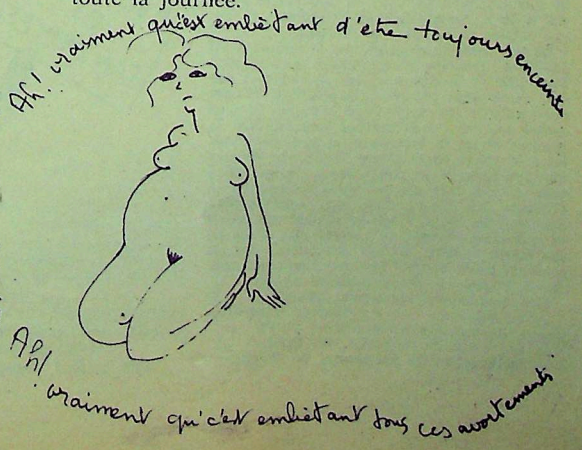 toute la journée.
Ah! vraiment qu'est embêtant d'être toujours enceinte
Ah! vraiment qu'c'est embêtant tous ces avortements